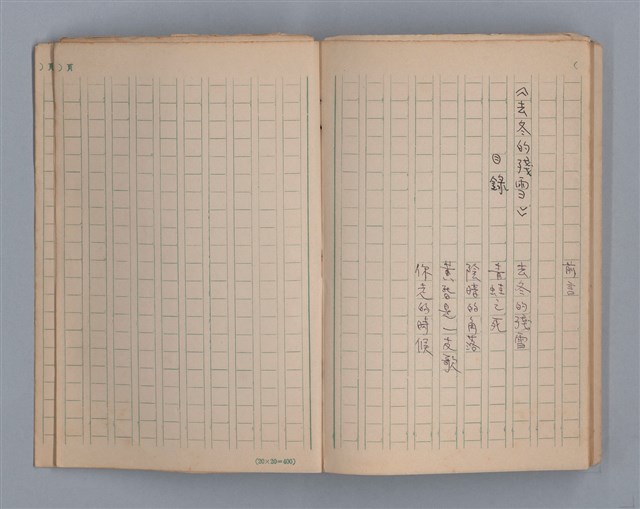 《去冬的殘雪》
目錄
前言
去冬的殘雪
青蛙之死
陰暗的角落
黃昏是一支歌
你走的時候
(20×20=400)
)頁
)頁